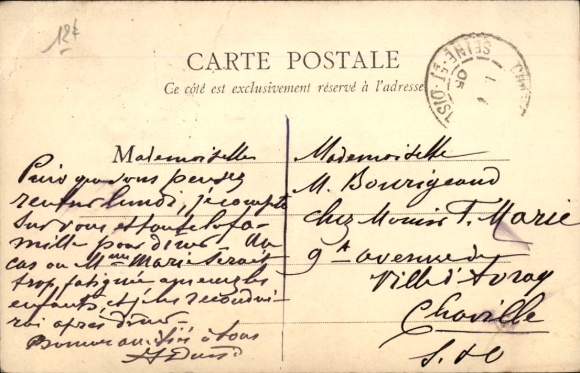 12f
CARTE POSTALE
Ce côté est exclusivement réservé à l'adresse
SEINE-ET-OISE
05
Mademoiselle
Puis que vous pensez
revenir lundi, je compte
sur vous et toute la fa-
mille pour diner. Au
cas ou Mme Marie serait
trop fatiguée amenez les
enfants, et je les reconduirai
roi après diner.
Bonne amitié à tous
Mademoiselle
M. Bourigeaud
chez Monsr T. Marie
9 avenue de
Ville d'Avray
Chaville
S. & O